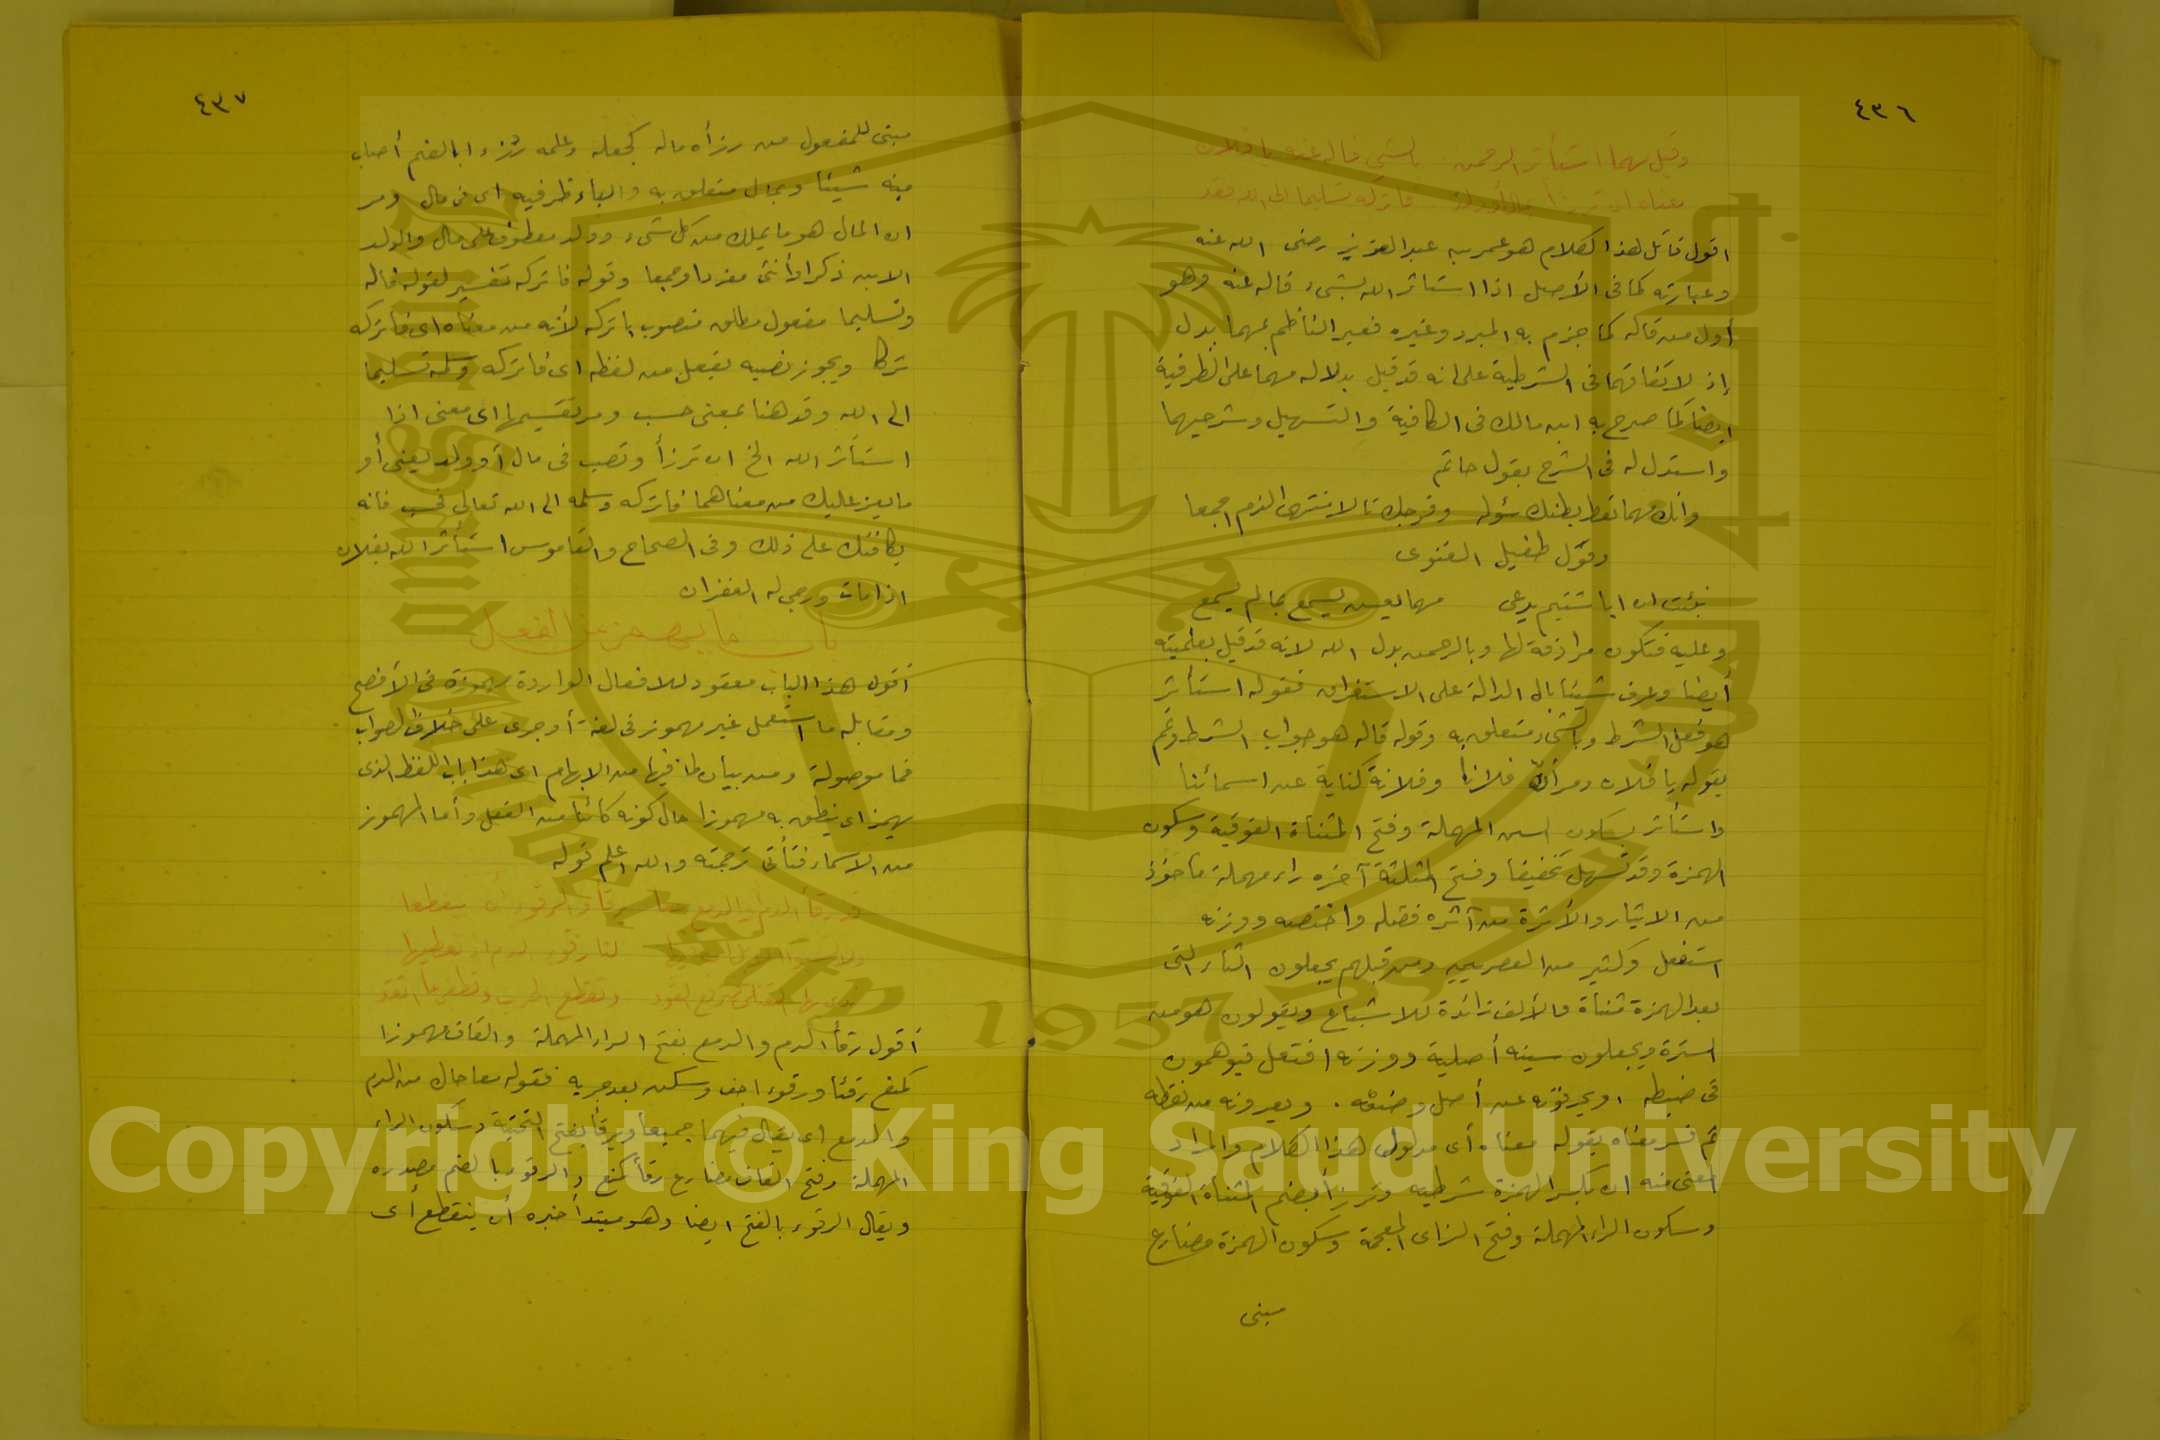 ٤٣٦
وقيل مهما استأثر الرحمن بالشيء فاله عنه يا فلان
معناه ان ترزأ بمال أو ولد فاتركه تسليما الى الله فقد
اقول قائل هذا الكلام هو عمر بن عبد العزيز رضى الله عنه
وعبارته كما فى الأصل اذا استأثر الله بشىء فاله عنه وهو
أول من قاله كما جزم به المبرد وغيره فعبر الناظم بمهما بدل
إذ لاتفاقهما فى الشرطية على انه قد قيل بدلالة مهما على الظرفية
ايضا كما صرح به ابن مالك فى الكافية والتسهيل وشرحيهما
واستدل له فى الشرح بقول حاتم
وانك مهما تعط بطنك سؤله وفرجك نالا منتهى الذم اجمعا
وقول طفيل الغنوى
نبئت ان ابا شتيم يدعى مهما يعش يسمع بما لم يسمع
وعليه فتكون مرادفة لها وبالرحمن بدل الله لانه قد قيل بعلميته
أيضا وعرف شيئا بال الدالة على الاستغراق فقوله استأثر
هو فعل الشرط وبالشىء متعلق به وقوله فاله هو جواب الشرط وتم
بقوله يا فلان ومر أن فلانا وفلانة كناية عن اسمائنا
واستأثر بسكون السين المهملة وفتح المثناة الفوقية وسكون
الهمزة وقد تسهل تخفيفا وفتح المثلثة آخره راء مهملة مأخوذ
من الايثار والأثرة من آثره فضله واختصه ووزنه
استفعل وكثير من العصريين ومن قبلهم يجعلون الثاء التى
بعد الهمزة مثناة والألف زائدة للاشباع ويقولون هو من
السترة ويجعلون سينه أصلية ووزنه افتعل فيوهمون
فى ضبطه ويحرفونه عن أصل وضعه . ويعرونه من نقطه
ثم فسر معناه بقوله معناه أى مدلول هذا الكلام والمراد
المعنى منه ان بكسر الهمزة شرطية وترزأ بضم المثناة الفوقية
وسكون الراء المهملة وفتح الزاى المعجمة وسكون الهمزة مضارع
مبنى
٤٣٧
مبنى للمفعول من رزأه ماله كجعله وعلمه رزءا بالضم أصاب
منه شيئا وبمال متعلق به والباء ظرفيه اى فى مال ومر
ان المال هو ما يملك من كل شىء وولد معطوف على مال والولد
الابن ذكرا وأنثى مفردا وجمعا وقوله فاتركه تفسير لقوله فاله
وتسليما مفعول مطلق منصوب باتركه لأنه من معناه اى فاتركه
تركا ويجوز نصبه بفعل من لفظه اى فاتركه وسلمه تسليما
الى الله وقد هنا بمعنى حسب ومر تقسيمها اى معنى اذا
استأثر الله الخ ان ترزأ وتصب فى مال أو ولد يعنى أو
ما يعز عليك من معناهما فاتركه وسلمه الى الله تعالى فحسب فانه
يكافئك على ذلك وفى الصحاح والقاموس استأثر الله بفلان
اذا مات ورجى له الغفران
باب ما يهمز من الفعل
أقول هذا الباب معقود للافعال الواردة مهموزة فى الأفصح
ومقابله ما استعمل غير مهموز فى لغة أو جرى على خلاف الصواب
فما موصولة ومن بيان لما فيها من الابهام اى هذا باب اللفظ الذى
يهمز اى ينطق به مهموزا حال كونه كائنا من الفعل وأما المهموز
من الاسماء فتأتى ترجمته والله اعلم قوله
أقول رقأ الدم والدمع بفتح الراء المهملة والقاف مهموزا
كمنع رقئا ورقوءا جف وسكن بعد جريه فقوله معا حال من الدم
والدمع اى يقال فيهما جميعا ويرقأ بفتح التحتية وسكون الراء
المهملة وفتح القاف مضارع رقأ كمنع والرقوء بالضم مصدره
ويقال الرقوء بالفتح ايضا وهو مبتدأ خبره أن ينقطع أى
Copyright © King Saud University
1957